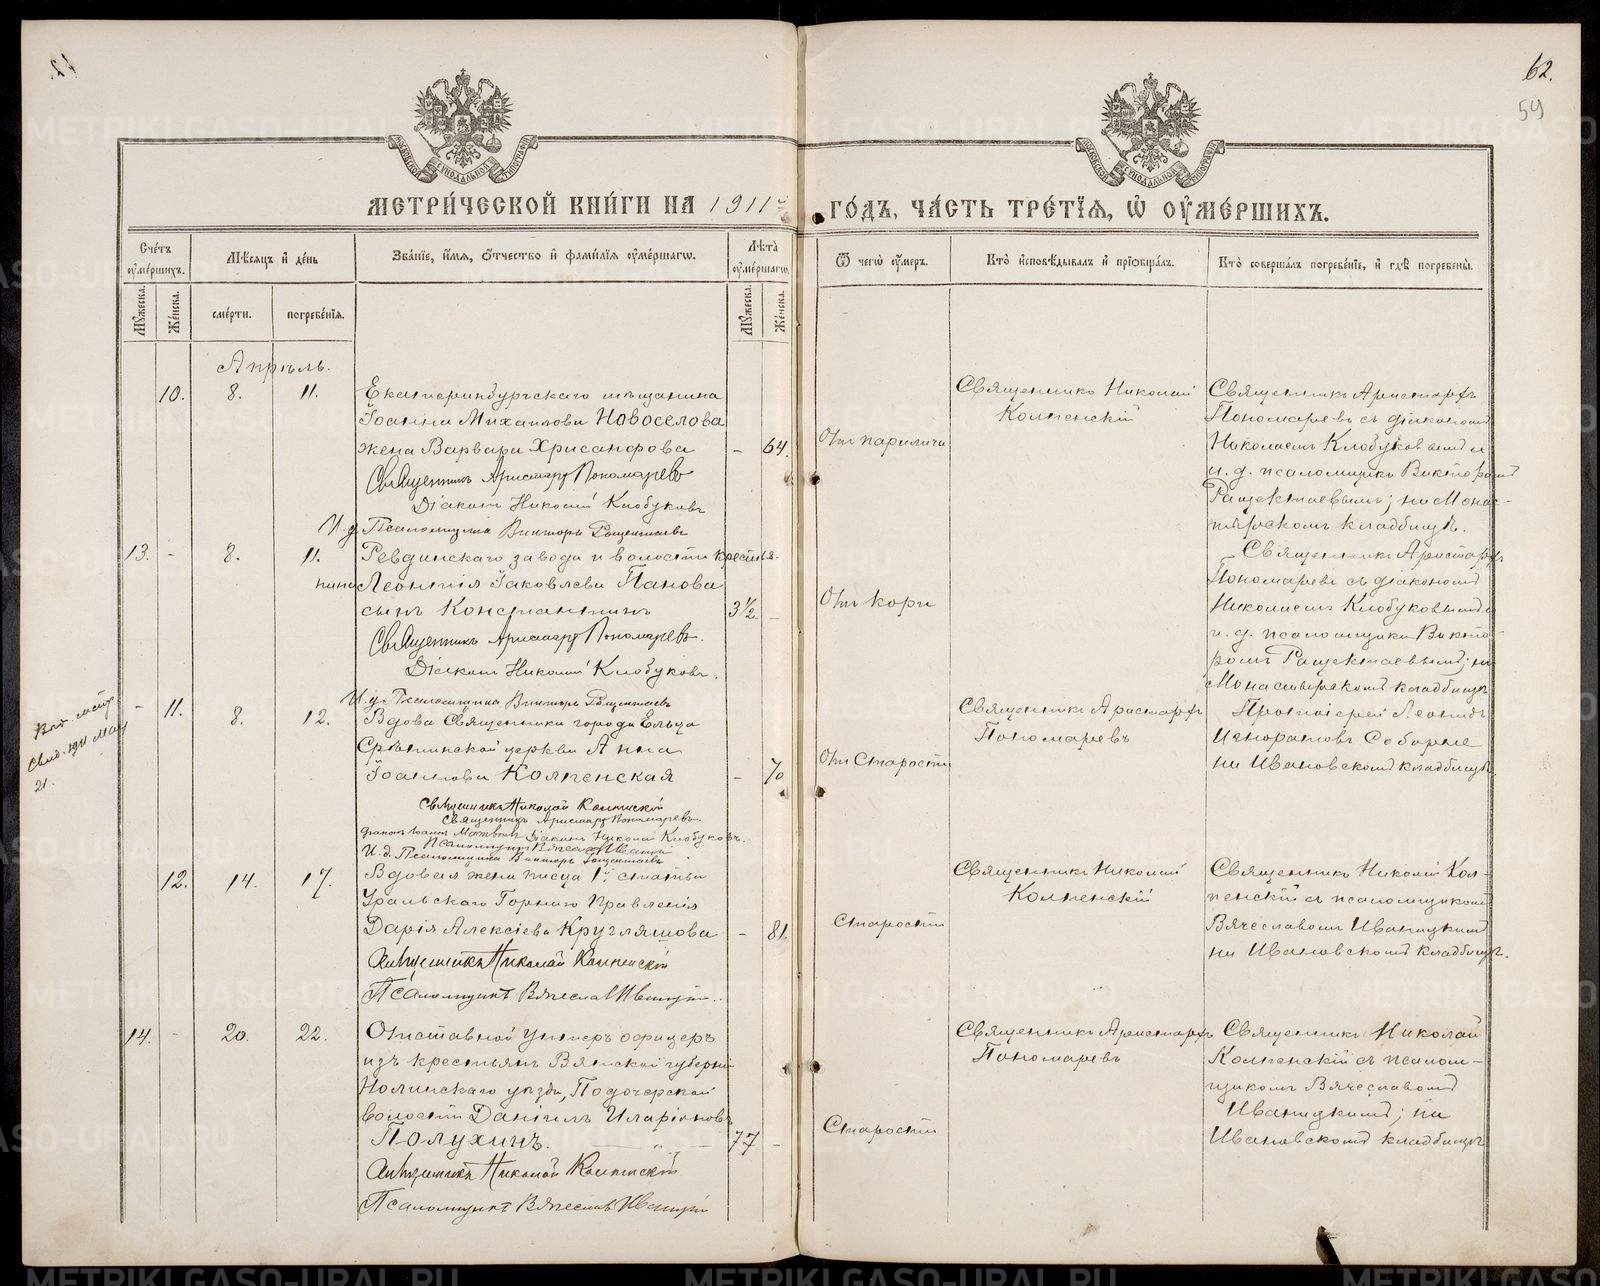 62.
59
МЕТРИ́ЧЕСКОЙ КНИ́ГИ НА 1911 ГО́ДЪ, ЧА́СТЬ ТРЕ́ТІЯ, Ѿ ОУМЕ́РШИХЪ.
Сче́тъ оуме́ршихъ.
Мѣсяцъ и де́нь
Зва́ніе, и́мя, о́тчество и фами́лія оуме́ршагѡ.
Лѣта̀ оуме́ршагѡ.
Ѿ чегѡ̀ оу́меръ.
Кто̀ исповѣ́дывалъ и пріобща́лъ.
Кто̀ соверша́лъ погребе́ніе, и гдѣ̀ погребены̀.
Мꙋжеска.
Же́нска.
сме́рти.
погребе́нія.
Мꙋжеска.
Же́нска.
Апрѣль.
10. 8. 11.
Екатеринбургскаго мѣщанина
Іоанна Михаилова Новоселова
жена Варвара Хрисанфова - 64.
Священникъ Аристархъ Пономаревъ
Діаконъ Николай Клобуковъ
И д Псаломщика Викторъ Ращектаевъ
Отъ паралича
Священникъ Николай
Колпенскій
Священникъ Аристархъ
Пономаревъ съ діакономъ
Николаемъ Клобуковымъ и
и. д. псаломщика Викторомъ
Ращектаевымъ; на Монас-
тырскомъ кладбищѣ.
13. - 8. 11.
Ревдинскаго завода и волости крестья-
нина Леонтія Іаковлева Панова
сынъ Константинъ 3½. -
Священникъ Аристархъ Пономаревъ.
Діаконъ Николай Клобуковъ.
И д Псаломщика Викторъ Ращектаевъ
Отъ кори
Священникъ Аристархъ
Пономаревъ съ діакономъ
Николаемъ Клобуковымъ и
и. д. псаломщика Викто-
ромъ Ращектаевымъ; на
Монастырскомъ кладбищѣ
21.
- 11. 8. 12.
Вдова Священника города Ельца
Срѣтинской церкви Анна
Іоаннова Колпенская - 70
Священникъ Николай Колпенскій
Священникъ Аристархъ Пономаревъ.
Діаконъ Николай Клобуковъ.
И. д. Псаломщика Викторъ Ращектаевъ
Отъ Старости
Священникъ Аристархъ
Пономаревъ
Протоіерей Леонидъ
Игноратовъ Соборне
на Ивановскомъ кладбищѣ.
12. 14. 17.
Вдовая жена писца 1й статьи
Уральскаго Горнаго Правленія
Дарія Алексіева Кругляшова - 81.
Священникъ Николай Колпенскій
Псаломщикъ Вячеславъ Иваницкій.
Старости
Священникъ Николай
Колпенскій
Священникъ Николай Кол-
пенскій съ псаломщикомъ
Вячеславомъ Иваницкимъ
на Ивановскомъ кладбищѣ.
14. - 20. 22.
Отставной Унтеръ офицеръ
изъ крестьянъ Вятской губерніи
Нолинскаго уѣзда,
волости Даніилъ Иларіоновъ
Полухинъ. 77 -
Священникъ Николай Колпенскій
Псаломщикъ Вячеславъ Иваницкій
Старости
Священникъ Аристархъ
Пономаревъ
Священникъ Николай
Колпенскій съ псалом-
щикомъ Вячеславомъ
Иваницкимъ; на
Ивановскомъ кладбищѣ
METRIKI.GASO-URAL.RU